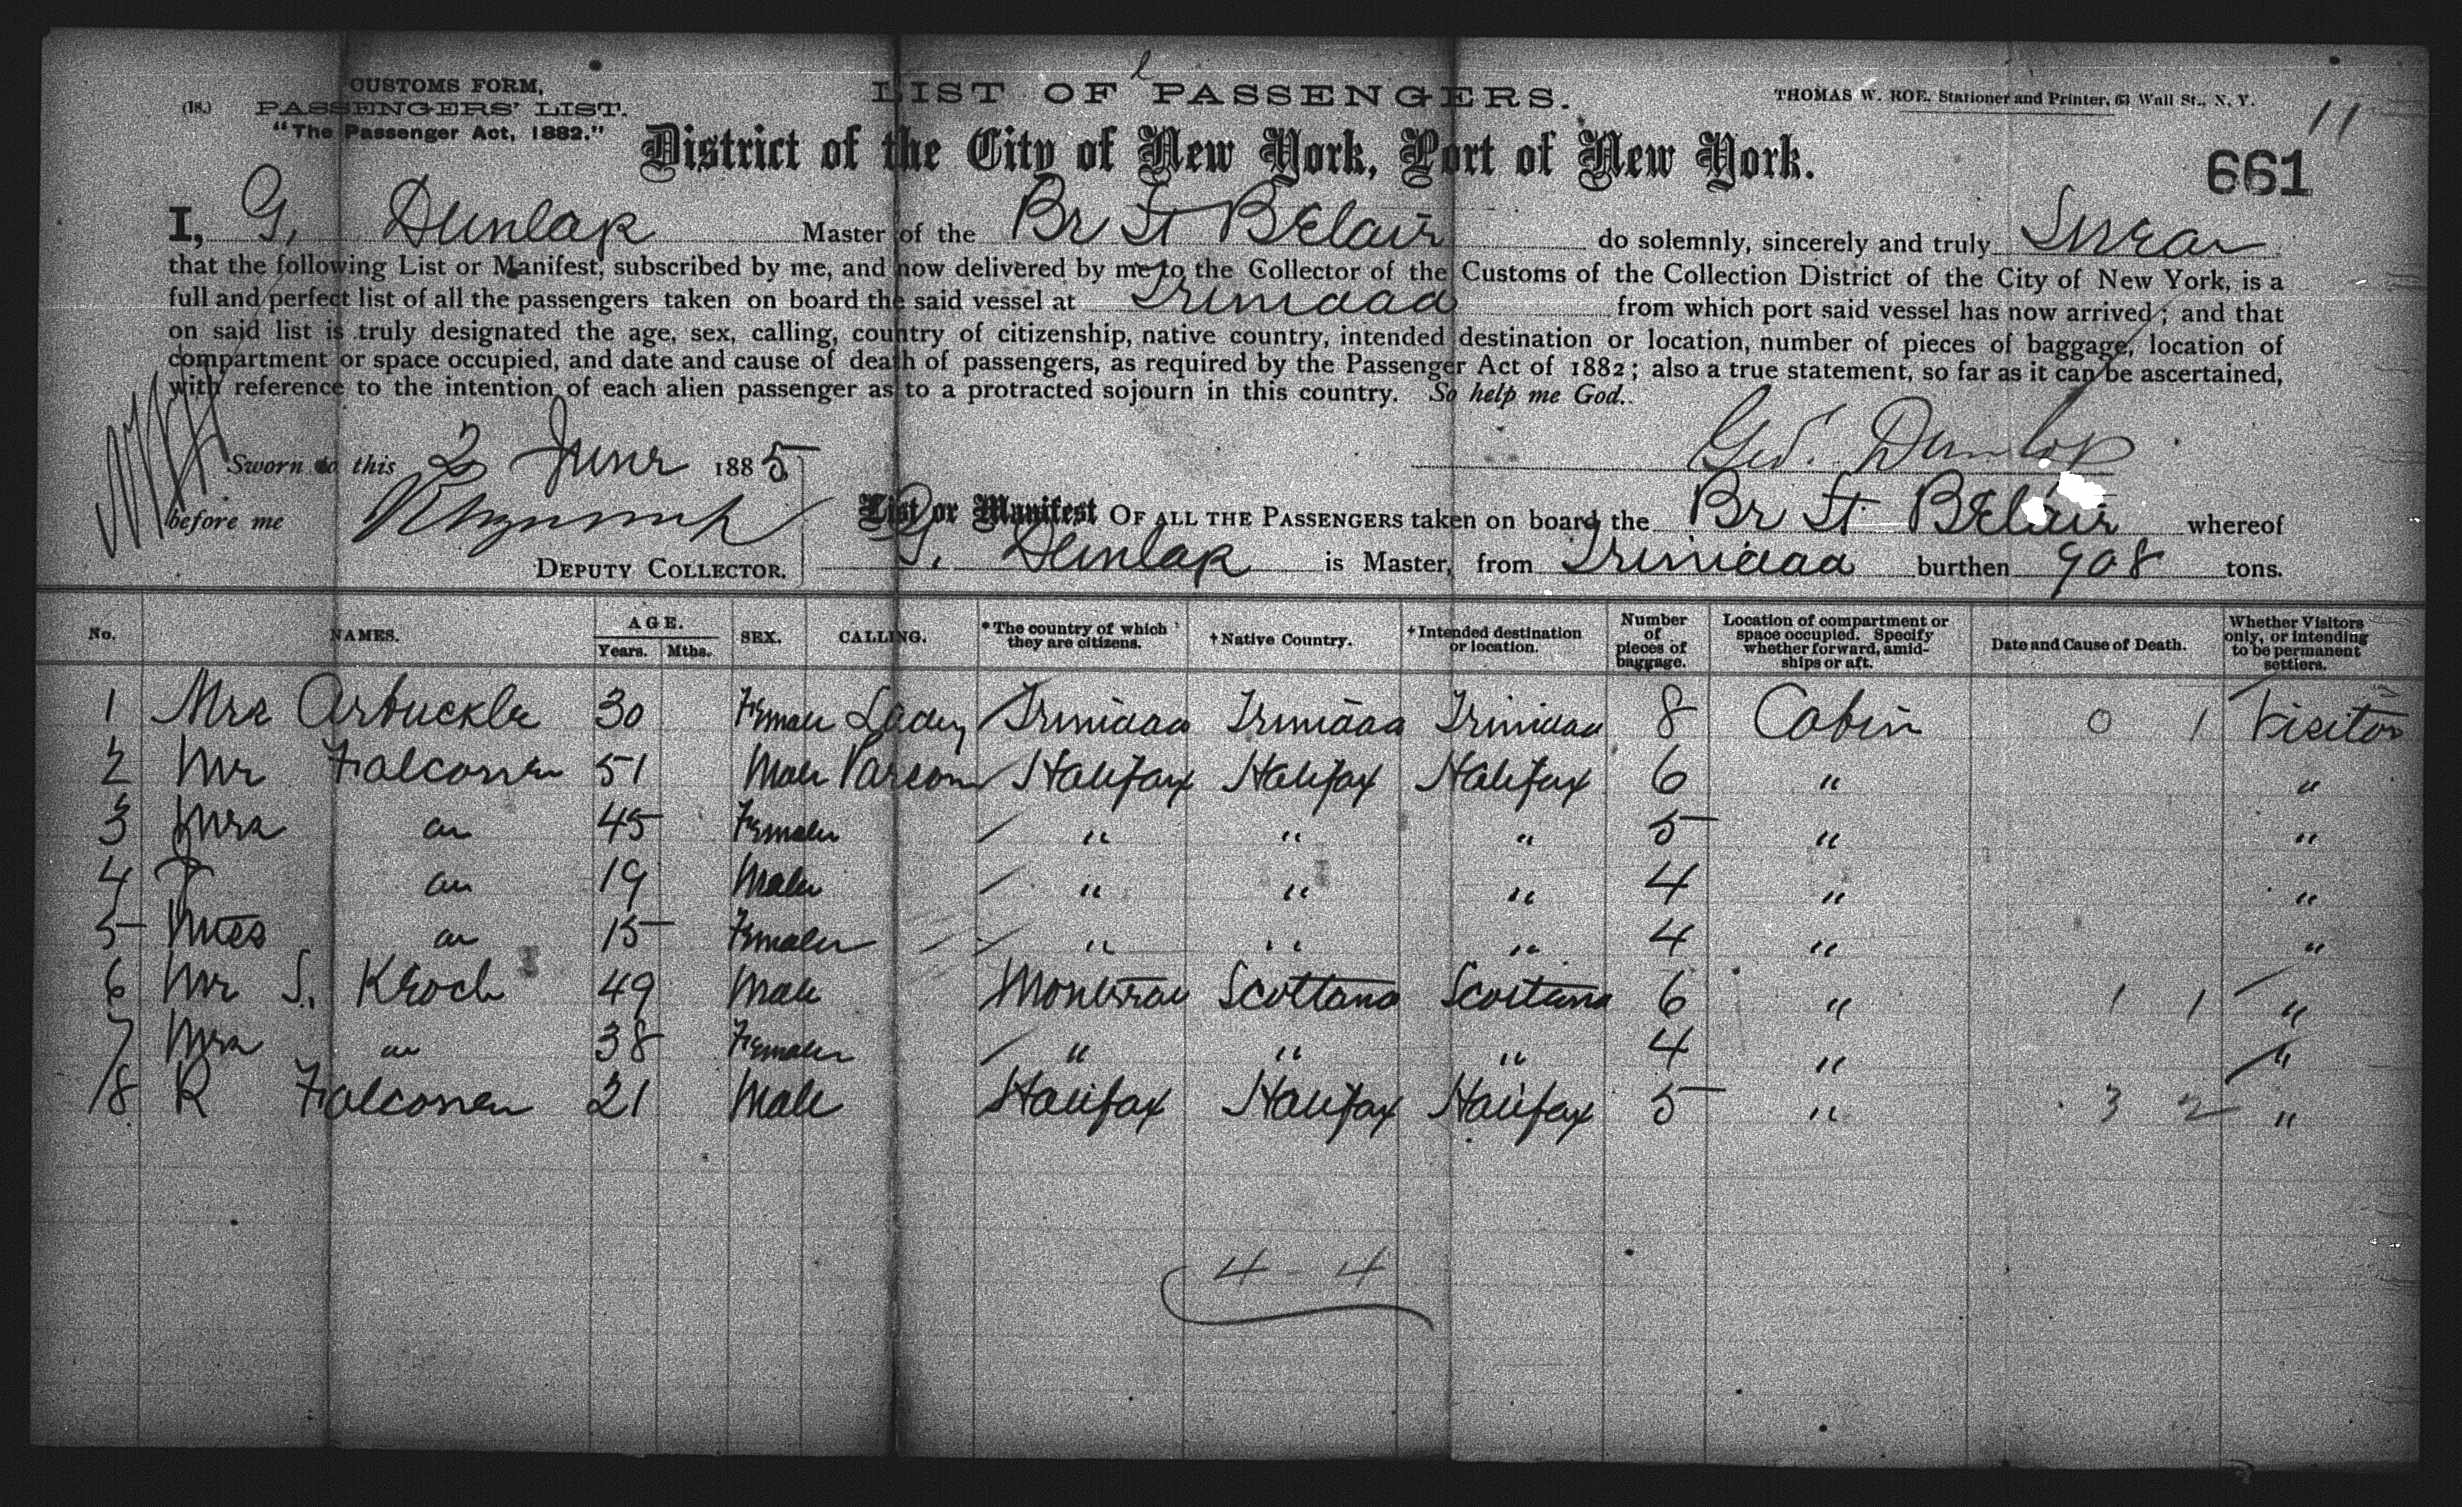 CUSTOMS FORM,
(18.) PASSENGERS' LIST.
"The Passenger Act, 1882."
LIST OF PASSENGERS.
THOMAS W. ROE, Stationer and Printer, 63 Wall St., N. Y.
11
District of the City of New York, Port of New York.
661
I, G. Dunlap Master of the Br St Belair do solemnly, sincerely and truly Swear
that the following List or Manifest, subscribed by me, and now delivered by me to the Collector of the Customs of the Collection District of the City of New York, is a
full and perfect list of all the passengers taken on board the said vessel at Trinidad from which port said vessel has now arrived; and that
on said list is truly designated the age, sex, calling, country of citizenship, native country, intended destination or location, number of pieces of baggage, location of
compartment or space occupied, and date and cause of death of passengers, as required by the Passenger Act of 1882; also a true statement, so far as it can be ascertained,
with reference to the intention of each alien passenger as to a protracted sojourn in this country. So help me God.
Geo. Dunlop
Sworn to this 2 June 1885
before me
DEPUTY COLLECTOR.
List or Manifest OF ALL THE PASSENGERS taken on board the Br St Belair whereof
G. Dunlap is Master, from Trinidad burthen 908 tons.
No. NAMES. AGE. Years. Mths. SEX. CALLING. *The country of which they are citizens. †Native Country. †Intended destination or location. Number of pieces of baggage. Location of compartment or space occupied. Specify whether forward, amidships or aft. Date and Cause of Death. Whether Visitors only, or intending to be permanent settlers.
1 Mrs Arbuckle 30 Female Lady Trinidad Trinidad Trinidad 8 Cabin 0 1 Visitor
2 Mr Falconer 51 Male Parson Halifax Halifax Halifax 6 " "
3 Mrs do 45 Female " " " 5 " "
4 do 19 Male " " " 4 " "
5 Miss do 15 Female " " " 4 " "
6 Mr S. Kroch 49 Male Montserrat Scotland Scotland 6 " 1 1 "
7 Mrs do 38 Female " " " 4 " "
8 R Falconer 21 Male Halifax Halifax Halifax 5 " 3 2 "
4 - 4